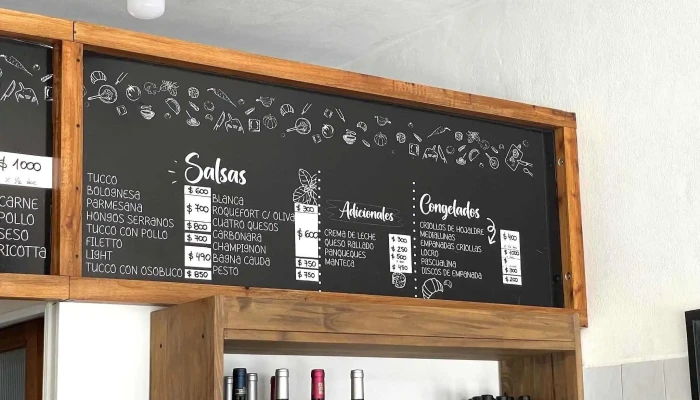 $ 1000
CARNE
POLLO
SESO
RICOTTA
Salsas
TUCCO $ 600
BOLOGNESA
PARMESANA $ 700
HONGOS SERRANOS $ 800
TUCCO CON POLLO $ 700
FILETTO
LIGHT $ 490
TUCCO CON OSOBUCO $ 850
BLANCA
ROQUEFORT C/ OLIVA $ 300
CUATRO QUESOS
CARBONARA $ 600
CHAMPIGNON
BAGNA CAUDA $ 750
PESTO $ 750
Adicionales
CREMA DE LECHE $ 300
QUESO RALLADO $ 250
PANQUEQUES $ 500
MANTECA $ 450
Congelados
CRIOLLOS DE HOJALDRE $ 400
MEDIALUNAS
EMPANADAS CRIOLLAS
LOCRO $ 1000
PASCUALINA $ 300
DISCOS DE EMPANADA $ 200